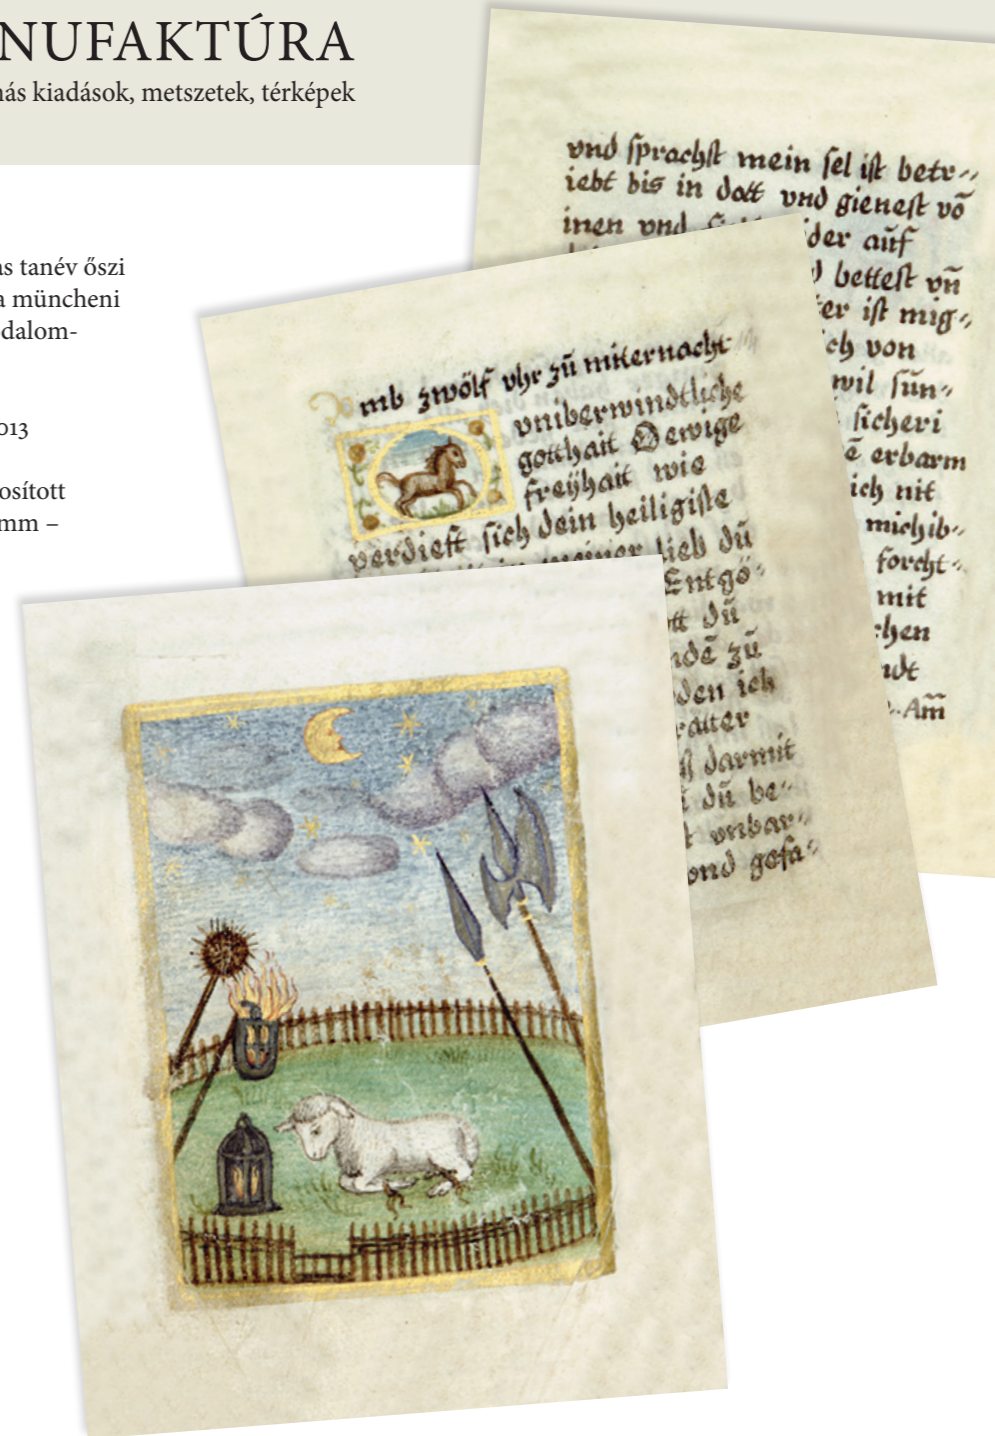 NUFAKTÚRA
ás kiadások, metszetek, térképek
as tanév őszi
a müncheni
dalom-
013
osított
mm –
vnd ſprachſt mein ſel iſt betr〃
iebt bis in dott vnd gieneſt vō
inen vnd der aūf
betteſt vn̄
er iſt mig〃
ch von
wil ſūn〃
ſicheri
ē erbarm
ich nit
michib〃
forcht〃
mit
chen
ndt
Am̄
mb zwölf vhr zū miternacht
vniberwindtliche
gotthait O ewige
freÿhait wie
verdieft ſich dein heiligiſte
meiner lieb dū
Entgö〃
tt dū
ndē zū
den ich
ratter
darmit
dū be〃
t vnbar〃
vnd gefa〃